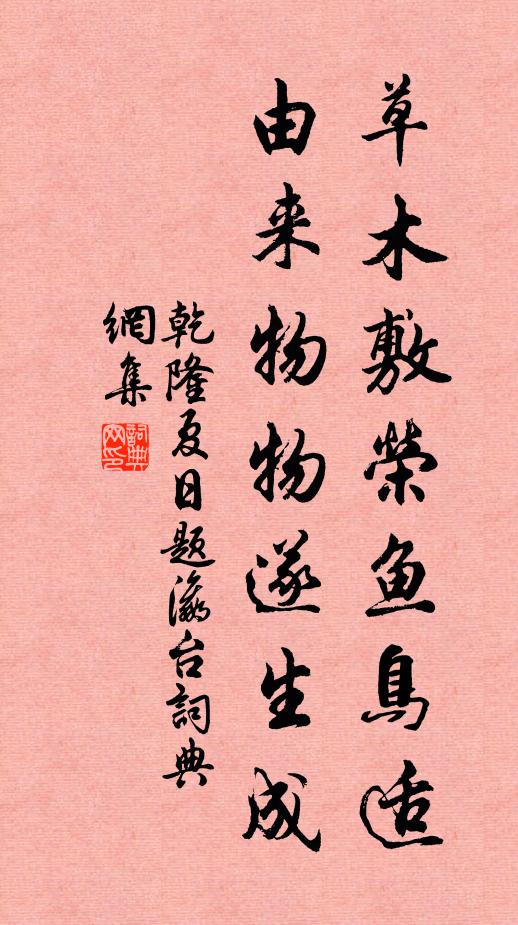 草木敷榮鱼鳥适
由来物物遂生成
乾隆夏日题瀛台詞典
網集
詞典
网印